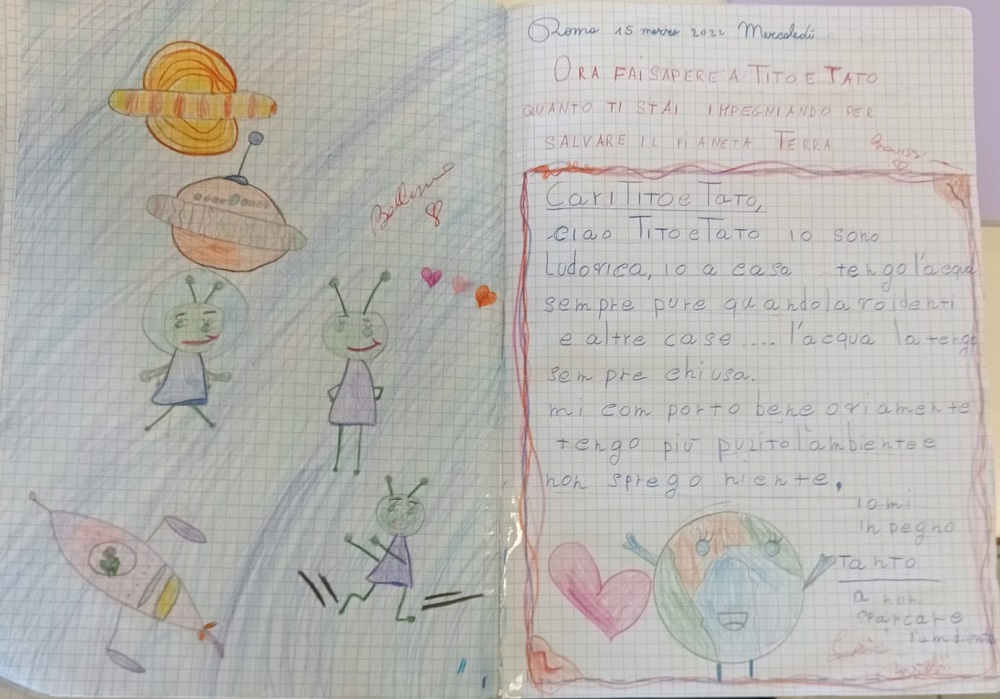 Roma 15 marzo 2022 Mercoledì
ORA FAI SAPERE A TITO E TATO
QUANTO TI STAI IMPEGNIANDO PER
SALVARE IL PIANETA TERRA
Cari TITO e TATO,
ciao TITO e TATO io sono
Ludovica, io a casa tengo l'acqua
sempre pure quando la vo i denti
e altre case.... l'acqua la tengo
sempre chiusa.
mi com porto bene oriamente
tengo più pulito l'ambiente e
non sprego niente.
io mi
in pegno
TanTO
a non
sparcare
l'ambiente